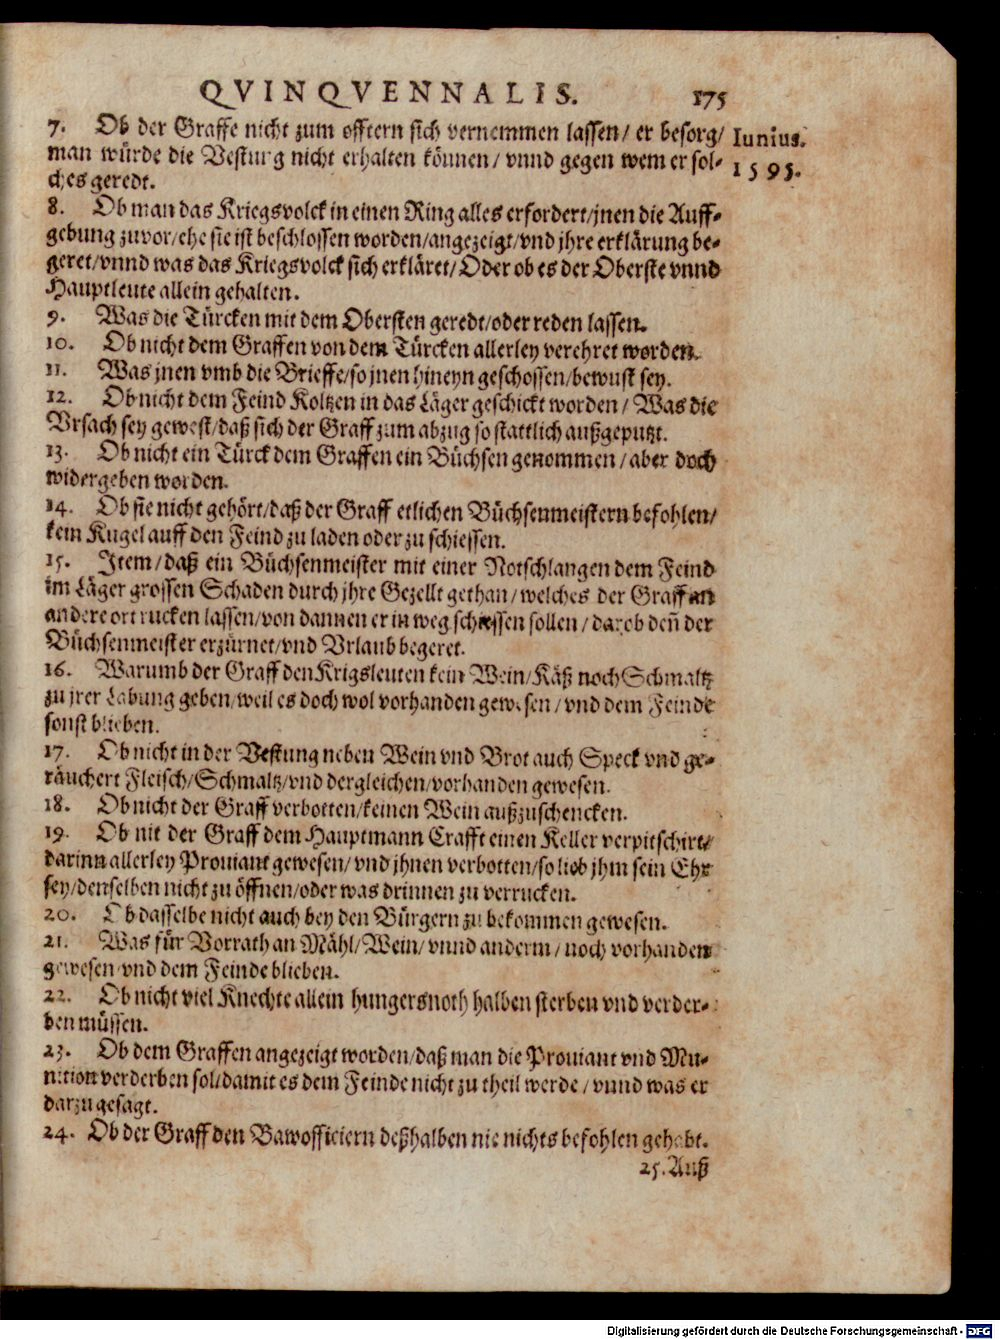 QVINQVENNALIS. 175
7. Ob der Graffe nicht zum offtern sich vernemmen lassen/ er besorg/
Iunius.
man würde die Vestung nicht erhalten können/ vnnd gegen wem er sol-
1595.
ches geredt.
8. Ob man das Kriegsvolck in einen Ring alles erfordert/ jnen die Auff-
gebung zuvor/ ehe sie ist beschlossen worden/ angezeigt/ vnd jhre erklärung be-
geret/ vnnd was das Kriegsvolck sich erkläret/ Oder ob es der Oberste vnnd
Hauptleute allein gehalten.
9. Was die Türcken mit dem Obersten geredt/ oder reden lassen.
10. Ob nicht dem Graffen von dem Türcken allerley verehret worden.
11. Was jnen vmb die Brieffe/ so jnen hineyn geschossen/ bewust sey.
12. Ob nicht dem Feind Koltzen in das Läger geschickt worden/ Was die
Vrsach sey gewest/ daß sich der Graff zum abzug so stattlich außgeputzt.
13. Ob nicht ein Türck dem Graffen ein Büchsen genommen/ aber doch
widergeben worden.
14. Ob sie nicht gehört/ daß der Graff etlichen Büchsenmeistern befohlen/
kein Kugel auff den Feind zu laden oder zu schiessen.
15. Item/ daß ein Büchsenmeister mit einer Notschlangen dem Feind
im Läger grossen Schaden durch jhre Gezellt gethan/ welches der Graff an
andere ort rucken lassen/ von dannen er in weg schiessen sollen/ darob deñ der
Büchsenmeister erzürnet/ vnd Vrlaub begeret.
16. Warumb der Graff den Krigsleuten kein Wein/ Käß noch Schmaltz
zu jrer Labung geben/ weil es doch wol vorhanden gewesen/ vnd dem Feinde
sonst blieben.
17. Ob nicht in der Vestung neben Wein vnd Brot auch Speck vnd ge-
räuchert Fleisch/ Schmaltz/ vnd dergleichen/ vorhanden gewesen.
18. Ob nicht der Graff verbotten/ keinen Wein außzuschencken.
19. Ob nit der Graff dem Hauptmann Crafft einen Keller verpitschirt/
darinn allerley Prouiant gewesen/ vnd jhnen verbotten/ so lieb jhm sein Ehr
sey/ denselben nicht zu öffnen/ oder was drinnen zu verrucken.
20. Ob dasselbe nicht auch bey den Bürgern zu bekommen gewesen.
21. Was für Vorrath an Mähl/ Wein/ vnnd anderm/ noch vorhanden
gewesen vnd dem Feinde blieben.
22. Ob nicht viel Knechte allein hungersnoth halben sterben vnd verder-
ben müssen.
23. Ob dem Graffen angezeigt worden/ daß man die Prouiant vnd Mu-
nition verderben sol/ damit es dem Feinde nicht zu theil werde/ vnnd was er
darzu gesagt.
24. Ob der Graff den Bawofficiern deßhalben nie nichts befohlen gehabt.
25. Auß
Digitalisierung gefördert durch die Deutsche Forschungsgemeinschaft - DFG